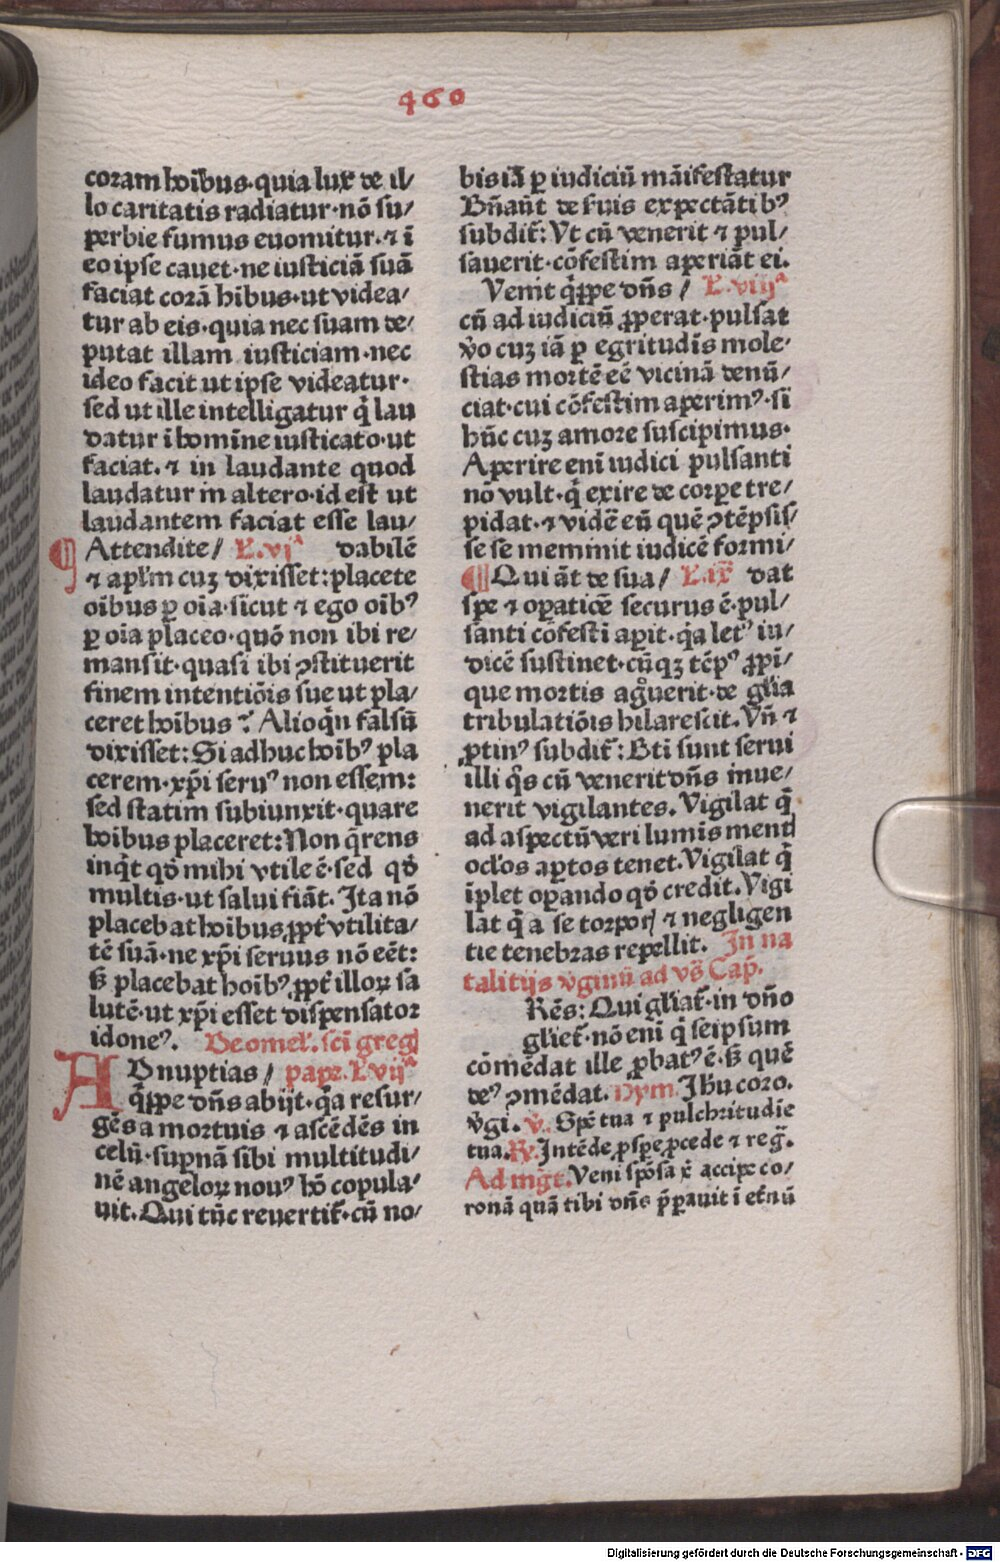 460
coram hoībus·quia lux de il/
lo caritatis radiatur·nō su/
perbie fumus euomitur.⁊ ī
eo ipse cauet·ne iusticiā suā
faciat corā hībus·ut videa/
tur ab eis·quia nec suam de/
putat illam iusticiam·nec
ideo facit ut ipse videatur·
sed ut ille intelligatur q̄ lau
datur ī homīne iusticato·ut
faciat.⁊ in laudante quod
laudatur in altero·id est ut
laudantem faciat esse lau/
Attendite/ L.vjᵃ dabilē
⁊ apl'm cuꝫ dixisset:placete
oībus ꝑ oīa·sicut ⁊ ego oībꝰ
ꝑ oīa placeo·quō non ibi re/
mansit·quasi ibi ꝯstituerit
finem intentiōis sue ut pla/
ceret hoībus? Alioqn̄ falsū
dixisset:Si adhuc hoībꝰ pla
cerem·xp̄i seruꝰ non essem:
sed statim subiunxit·quare
hoībus placeret:Non q̄rens
inq̄t qd̄ mihi vtile ē·sed qd̄
multis·ut salui fiāt. Ita nō
placebat hoībus ꝓpt̄ vtilita/
tē suā·ne xp̄i seruus nō eēt:
sꝫ placebat hoībꝰ ꝓpt̄ illoꝝ sa
lutē·ut xp̄i esset dispensator
idoneꝰ. De omel'. sci greg
AD nuptias/ pape. L vijᵃ
q̄ippe dn̄s abijt·q̄a resur/
gēs a mortuis ⁊ ascēdēs in
celū·supnā sibi multitudi/
nē angeloꝝ nouꝰ hō copula/
uit. Qui tūc reuertit̄·cū no/
bis iā ꝑ iudiciū māifestatur
Bn̄ aūt de suis expectātibꝰ
subdit̄: Vt cū venerit ⁊ pul/
sauerit·cōfestim aperiāt ei.
Venit q̄ippe dn̄s/ L.viijᵃ
cū ad iudiciū ꝓperat·pulsat
v̄o cuꝫ iā ꝑ egritudīs mole/
stias mortē eē vicinā denū/
ciat·cui cōfestim aperimꝰ·si
hūc cuꝫ amore suscipimus·
Aperire enī iudici pulsanti
nō vult·q̄ exire de corpe tre/
pidat·⁊ vidē eū quē ꝯtēpsis/
se se meminit iudicē formi/
Qui āt de sua/ L.ix dat
spe ⁊ opatiōe securus ē·pul/
santi cōfesti apit·q̄a letꝰ iu/
dicē sustinet·cūqꝫ tēpꝰ ꝓpī/
que mortis agͦuerit·de gl'ia
tribulatiōis hilarescit. Vn̄ ⁊
ꝓtinꝰ subdit̄: Bti sunt serui
illi q̄s cū venerit dn̄s inue/
nerit vigilantes. Vigilat q̄
ad aspectū veri lumīs menti
oc̄los aptos tenet. Vigilat q̄
īplet opando qd̄ credit. Vigi
lat q̄ a se torporꝭ ⁊ negligen
tie tenebras repellit. In na
talitijs v̄ginū ad vs̄ Cap̄.
Rēs: Qui gliat̄·in dn̄o
gliet̄·nō enī q̄ seipsum
cōmēdat ille ꝓbatꝰ ē·sꝫ quē
deꝰ ꝯmēdat. Hym. Ihū coro.
v̄gi. V̄. Spē tua ⁊ pulchritudīe
tua. Ry. Intēde ꝓspe ꝓcede ⁊ reḡ.
Ad mgt. Veni spōsa x̄ accipe co/
ronā quā tibi dn̄s p̄pauit ī et̄nū
Digitalisierung gefördert durch die Deutsche Forschungsgemeinschaft - DFG